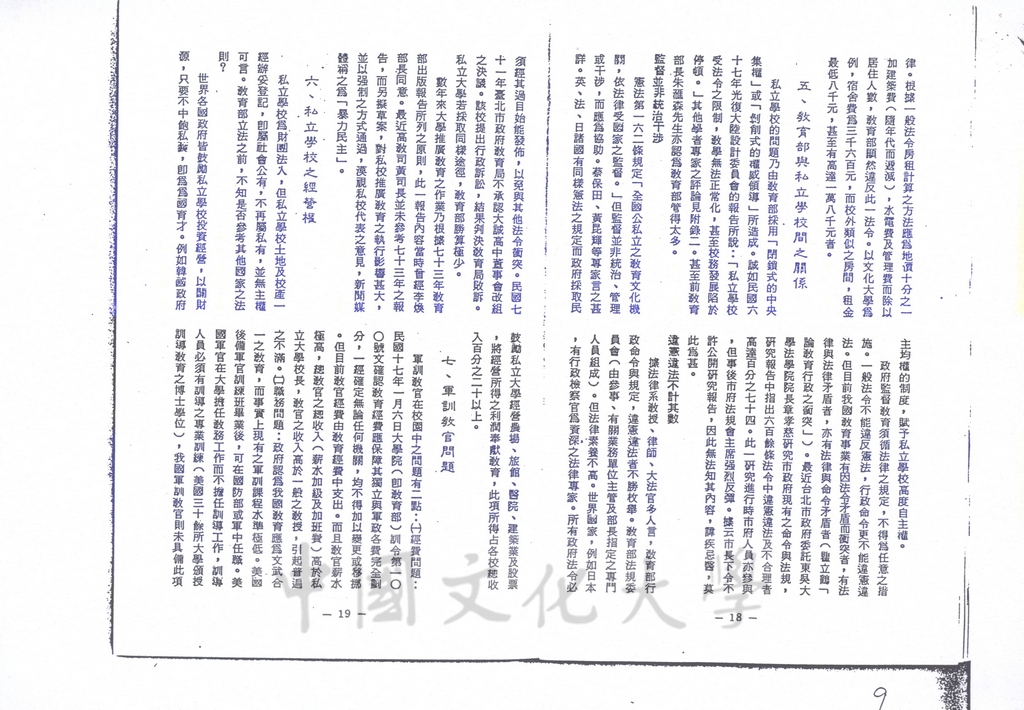 律。根據一般法令房租計算之方法應為地價十分之一
加建築費（隨年代而遞減），水電費及管理費而除以
居住人數，教育部顯然違反此一法令。以文化大學為
例，宿舍費為三千六百元，而校外類似之房間，租金
最低八千元，甚至有高達一萬八千元者。
五、教育部與私立學校間之關係
私立學校的問題乃由教育部採用「閉鎖式的中央
集權」或「剝削式的權威領導」所造成。誠如民國六
十七年光復大陸設計委員會的報告所說：「私立學校
受法令之限制，教學無法正常化，甚至校務發展陷於
停頓。」其他學者專家之評論見附錄二。甚至前教育
部長朱匯森先生亦認為教育部管得太多。
監督並非統治干涉
憲法第一六二條規定「全國公私立之教育文化機
關，依法律受國家之監督。」但監督並非統治、管理
或干涉，而應為協助。蔡保田、黃昆輝等專家言之甚
詳。英、法、日諸國有同樣憲法之規定而政府採取民
主均權的制度，賦予私立學校高度自主權。
政府監督教育須循法律之規定，不得為任意之措
施。一般法令不能違反憲法，行政命令更不能違憲違
法。但目前我國教育事業有因法令矛盾而衝突者，有法
律與法律矛盾者，亦有法律與命令矛盾者（瞿立鶴「
論教育行政之衝突」）。最近台北市政府委託東吳大
學法學院院長章孝慈研究市政府現有之命令與法規，
研究報告中指出六百餘條法令中違憲違法及不合理者
高達百分之七十四。此一研究進行時市府人員亦參與
，但事後市府法規會主席強烈反彈。據云市長下令不
許公開研究報告，因此無法知其內容，諱疾忌醫，莫
此為甚。
違憲違法不計其數
據法律系教授、律師、大法官多人言，教育部行
政命令與規定，違憲違法者不勝枚舉。教育部法規委
員會（由參事、有關業務單位主管及部長指定之專門
人員組成）。但法律素養不高。世界國家，例如日本
，有行政檢察官為資深之法律專家。所有政府法令必
— 18 —
須經其過目始能發佈，以免與其他法令衝突。民國七
十一年臺北市政府教育局不承認大誠高中董事會改組
之決議。該校提出行政訴訟，結果判決教育局敗訴。
私立大學若採取同樣途徑，教育部勝算極少。
數年來大學推廣教育之作業乃根據七十三年教育
部出版報告所列之原則，此一報告內容當時曾經李煥
部長同意。最近高教司黃司長並未參考七十三年之報
告，而另擬草案，對私校推廣教育之執行影響甚大，
並以強制之方式通過，漠視私校代表之意見，新聞媒
體稱之為「暴力民主」。
六、私立學校之經營權
私立學校為財團法人，但私立學校土地及校產一
經辦妥登記，即屬社會公有，不再屬私有，並無主權
可言。教育部立法之前，不知是否參考其他國家之法
則？
世界各國政府皆鼓勵私立學校投資經營，以開財
源，只要不中飽私囊，即為為國育才。例如韓國政府
鼓勵私立大學經營農場、旅館、醫院、建築業及股票
，將經營所得之利潤奉獻教育，此項所得占各校總收
入百分之二十以上。
七、軍訓教官問題
軍訓教官在校園中之問題有二點：㈠經費問題：
民國十七年一月六日大學院（即教育部）訓令第一〇
〇號文確認教育經費應保障其獨立與軍政各費完全劃
分，一經確定無論任何機關，均不得加以變更或移挪
。但目前教官經費由教育經費中支出。而且教官薪水
極高，總教官之總收入（薪水加級及加班費）高於私
立大學校長，教官之收入高於一般之教授，引起普遍
之不滿。㈡職務問題：政府認為我國教育應為文武合
一之教育，而事實上現有之軍訓課程水準極低。美國
後備軍官訓練班畢業後，可在國防部或軍中任職。美
國軍官在大學擔任教務工作而不擔任訓導工作，訓導
人員必須有訓導之專業訓練（美國三十餘所大學頒授
訓導教育之博士學位），我國軍訓教官則未具備此項
— 19 —
中國文化大學
9